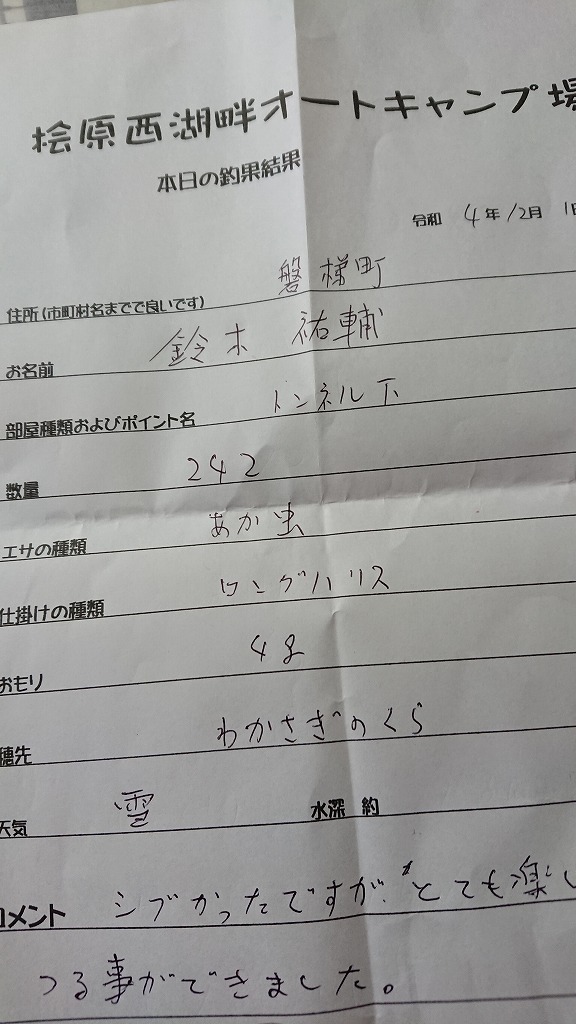 桧原西湖畔オートキャンプ場
本日の釣果結果
令和 4年12月 1日
住所(市町村名までで良いです) 磐梯町
お名前 鈴木 祐輔
部屋種類およびポイント名 トンネル下
数量 242
エサの種類 あか虫
仕掛けの種類 ロングハリス
おもり 4g
穂先 わかさぎのくら
天気 雪 水深 約
コメント シブかったですが、とても楽し
つる事ができました。